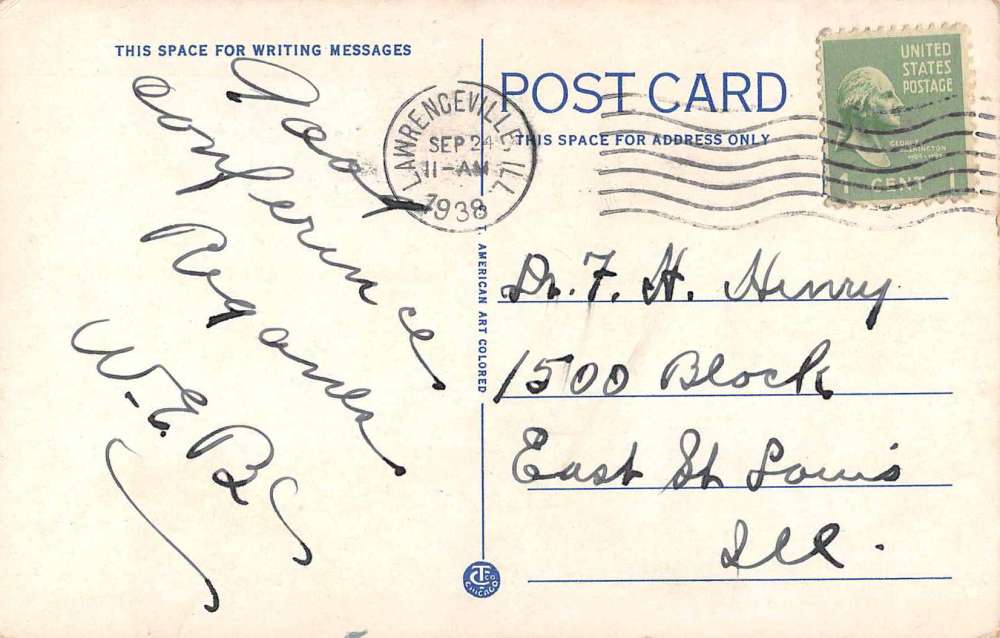 THIS SPACE FOR WRITING MESSAGES
Good
conference
Regards
W.E.B.
POST CARD
THIS SPACE FOR ADDRESS ONLY
LAWRENCEVILLE, ILL
SEP 24
11-AM
1938
UNITED
STATES
POSTAGE
GEORGE
WASHINGTON
1 CENT 1
Dr. F. H. Henry
1500 Block
East St Louis
Ill.
C.T. AMERICAN ART COLORED
CT CO
CHICAGO